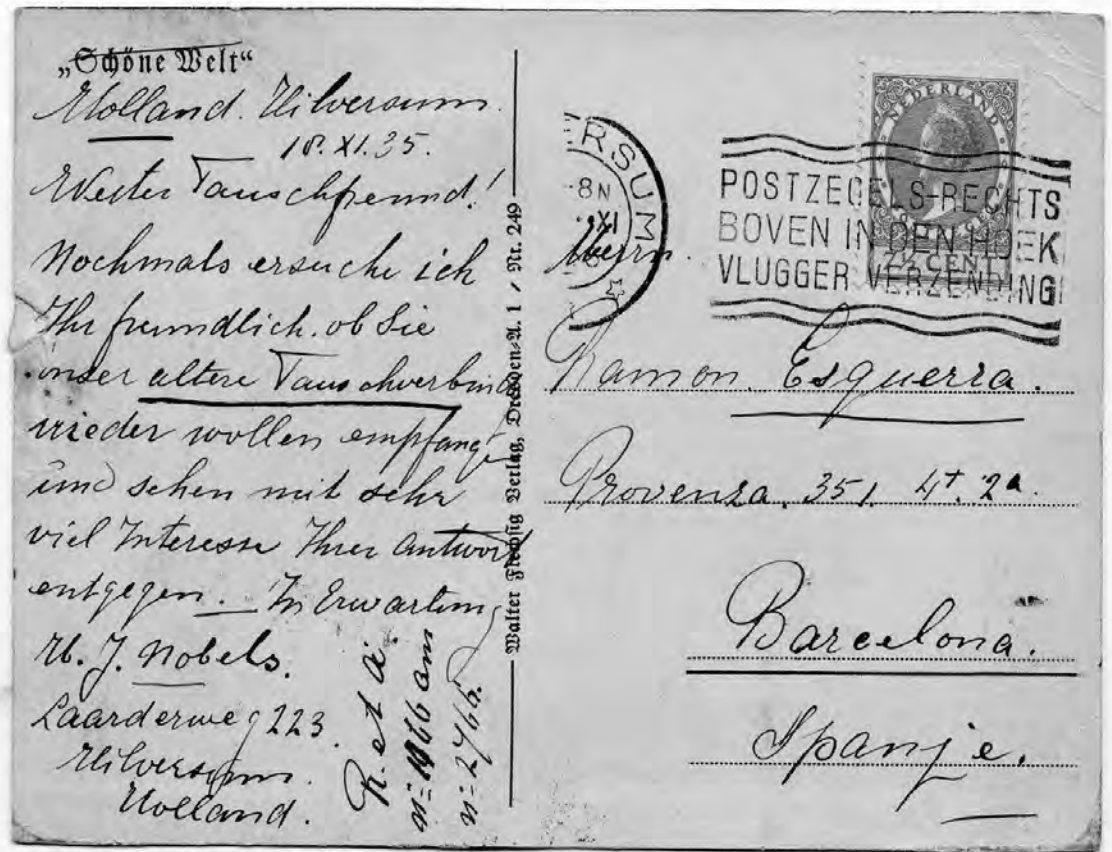 „Schöne Welt“
Holland. Hilversum.
18. XI. 35.
Werter Tauschfreund!
Nochmals ersuche ich
Ihr freundlich. ob Sie
unser altere Tauschverbind
wieder wollen empfange
und sehen mit sehr
viel Interesse Ihrer Antwort
entgegen. In Erwartung
H. J. Nobels.
Laarderweg 223.
Hilversum.
Holland.
R. et à.
nº 1966 am
nº 2766.
Walter Flechsig Verlag, Dresden-A. 1 / Nr. 249
ERSUM
8N
XI
NEDERLAND
7½ CENT
POSTZEGELS-RECHTS
BOVEN IN DEN HOEK
VLUGGER VERZENDING
Herrn.
Ramon. Esquerra.
Provenza. 351. 4t. 2a.
Barcelona.
Spanje.